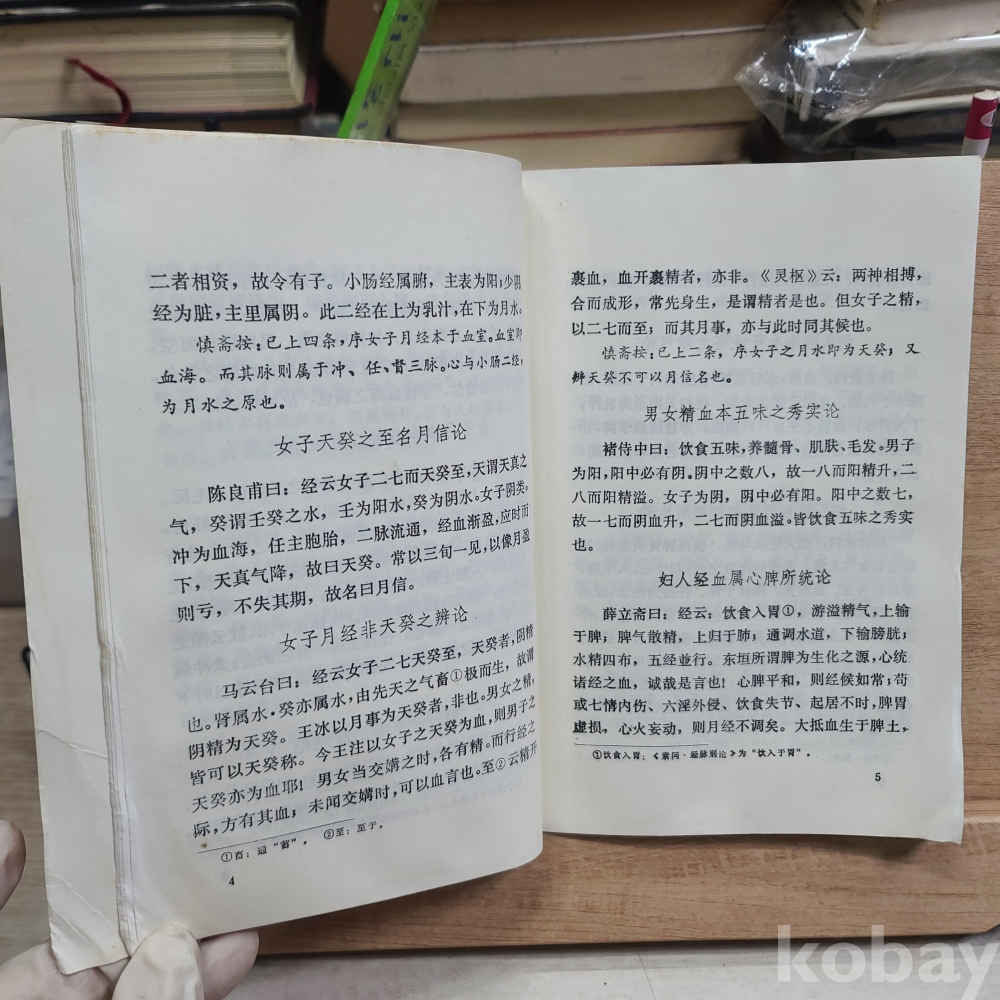 二者相资，故令有子。小肠经属腑，主表为阳；少阴
经为脏，主里属阴。此二经在上为乳汁，在下为月水。
慎斋按：已上四条，序女子月经本于血室。血室即
血海。而其脉则属于冲、任、督三脉。心与小肠二经，
为月水之原也。
女子天癸之至名月信论
陈良甫曰：经云女子二七而天癸至，天谓天真之
气，癸谓壬癸之水，壬为阳水，癸为阴水。女子阴类。
冲为血海，任主胞胎，二脉流通，经血渐盈，应时而
下，天真气降，故曰天癸。常以三旬一见，以像月盈
则亏，不失其期，故名曰月信。
女子月经非天癸之辨论
马云台曰：经云女子二七天癸至，天癸者，阴精
也。肾属水·癸亦属水，由先天之气畜①极而生，故谓
阴精为天癸。王冰以月事为天癸者，非也。男女之精，
皆可以天癸称。今王注以女子之天癸为血，则男子之
天癸亦为血耶！男女当交媾之时，各有精。而行经之
际，方有其血；未闻交媾时，可以血言也。至②云精开
①畜：通“蓄”。 ②至：至于。
4
裹血，血开裹精者，亦非。《灵枢》云：两神相搏，
合而成形，常先身生，是谓精者是也。但女子之精，
以二七而至；而其月事，亦与此时同其候也。
慎斋按：已上二条，序女子之月水即为天癸；又
辨天癸不可以月信名也。
男女精血本五味之秀实论
褚侍中曰：饮食五味，养髓骨、肌肤、毛发。男子
为阳，阳中必有阴。阴中之数八，故一八而阳精升，二
八而阳精溢。女子为阴，阴中必有阳。阳中之数七，
故一七而阴血升，二七而阴血溢。皆饮食五味之秀实
也。
妇人经血属心脾所统论
薛立斋曰：经云：饮食入胃①，游溢精气，上输
于脾；脾气散精，上归于肺；通调水道，下输膀胱；
水精四布，五经並行。东垣所谓脾为生化之源，心统
诸经之血，诚哉是言也！心脾平和，则经候如常；苟
或七情内伤、六淫外侵、饮食失节、起居不时，脾胃
虚损，心火妄动，则月经不调矣。大抵血生于脾土，
①饮食入胃：《素问·经脉别论》为“饮入于胃”。
5
kobay